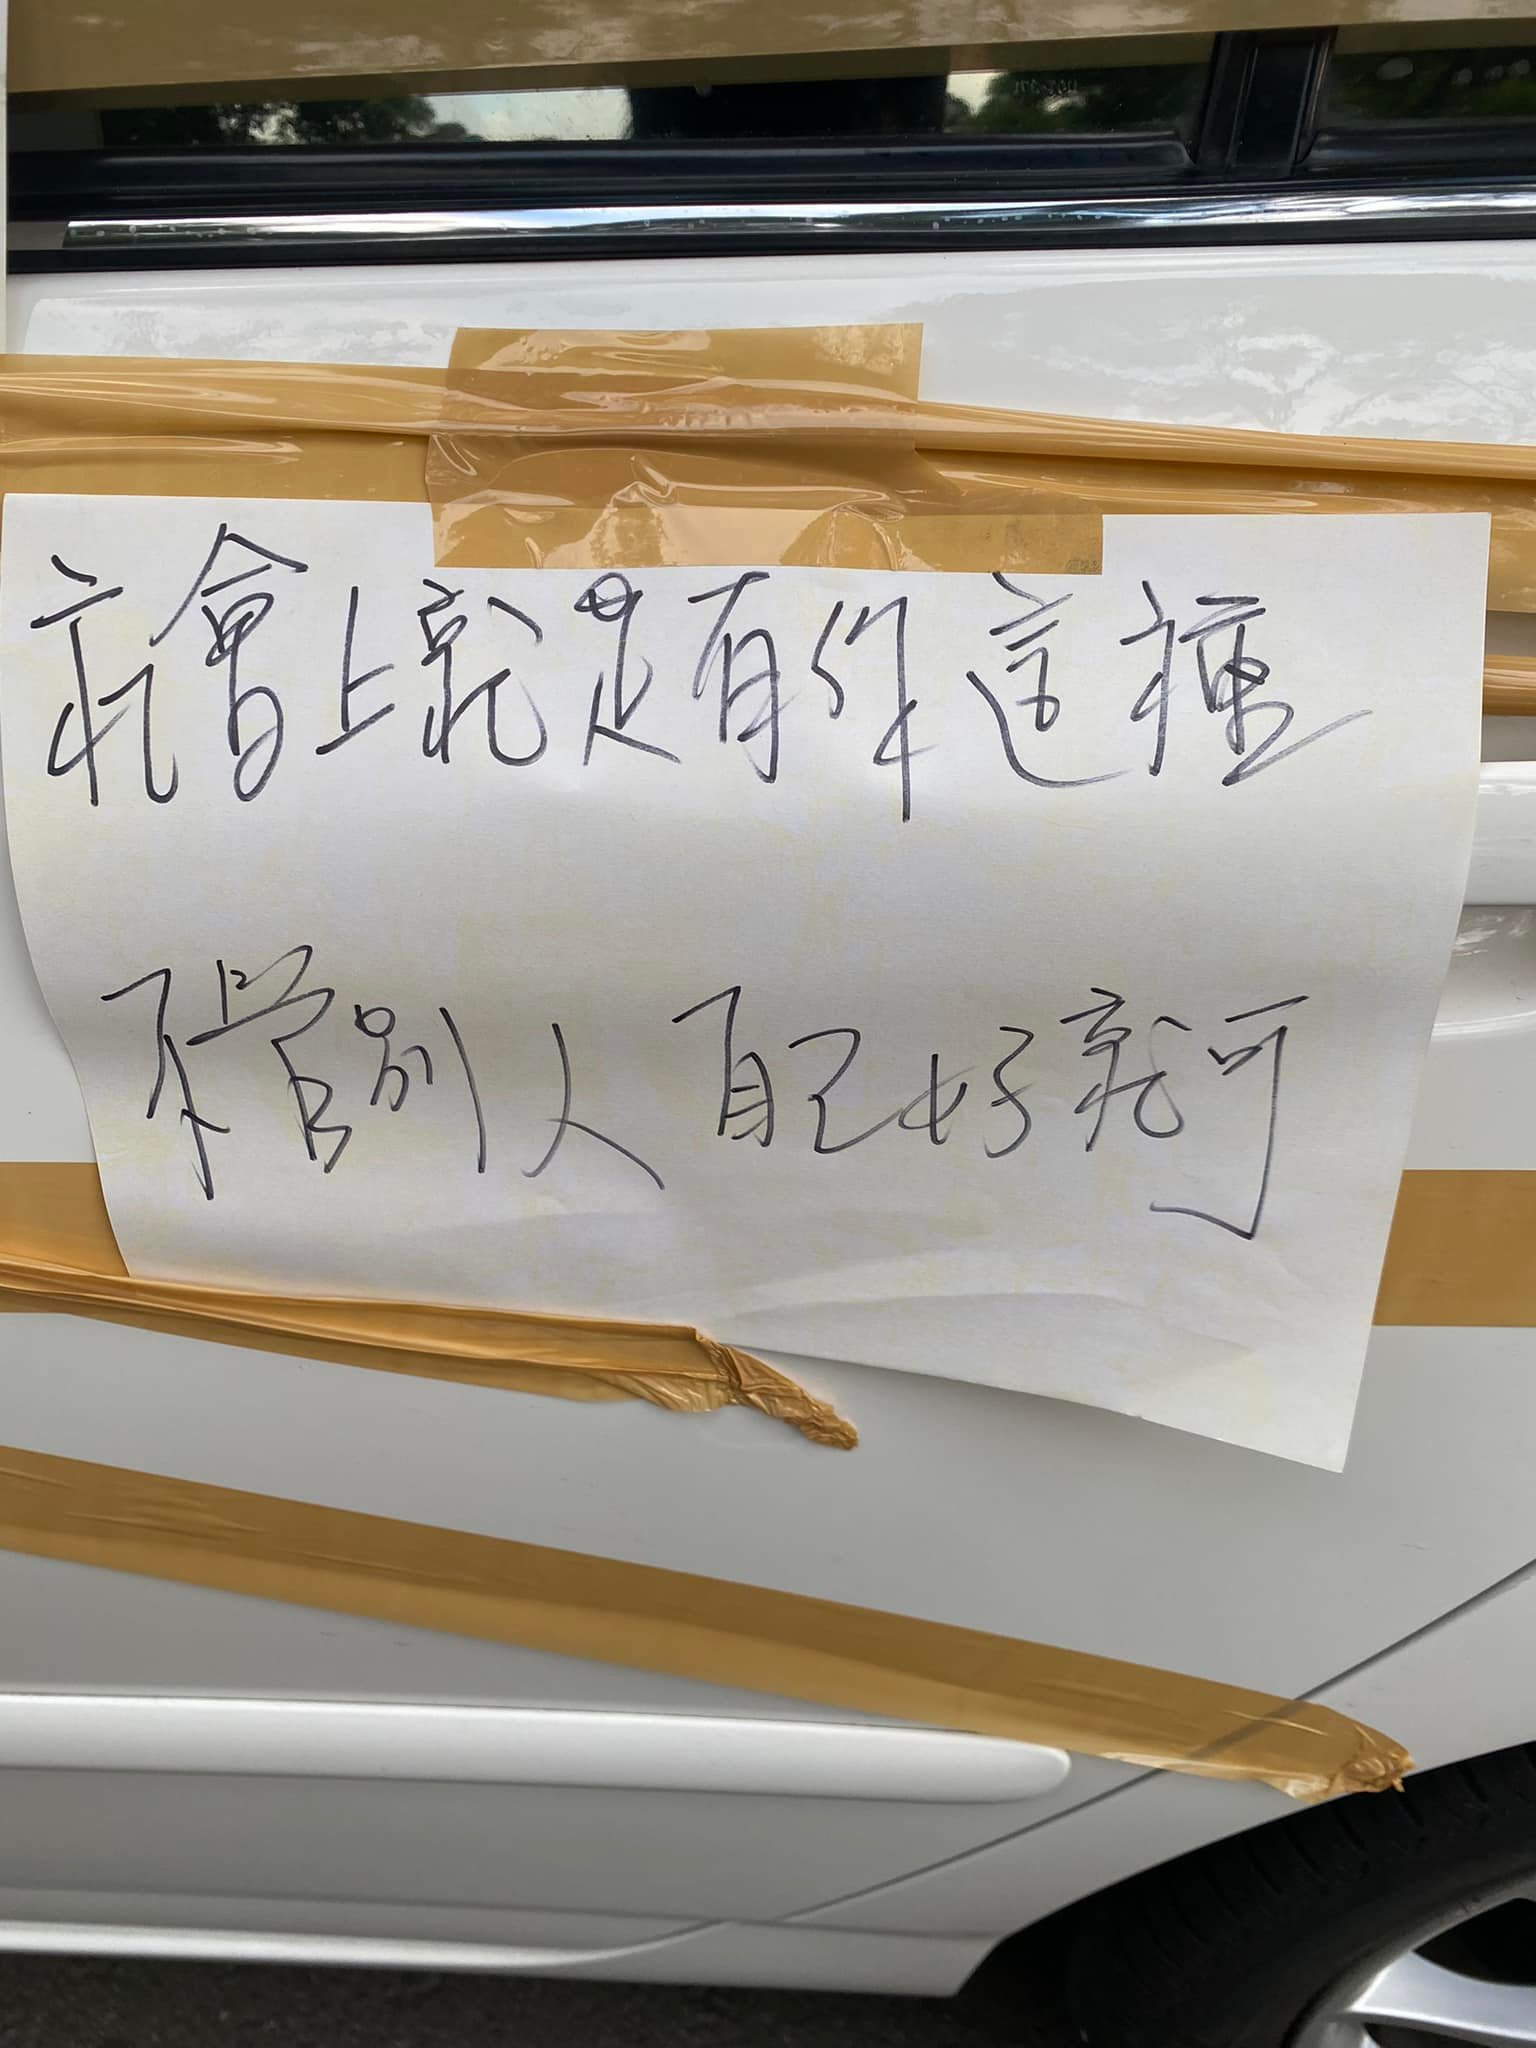 社會上就是有你這種
不管別人自己好就可